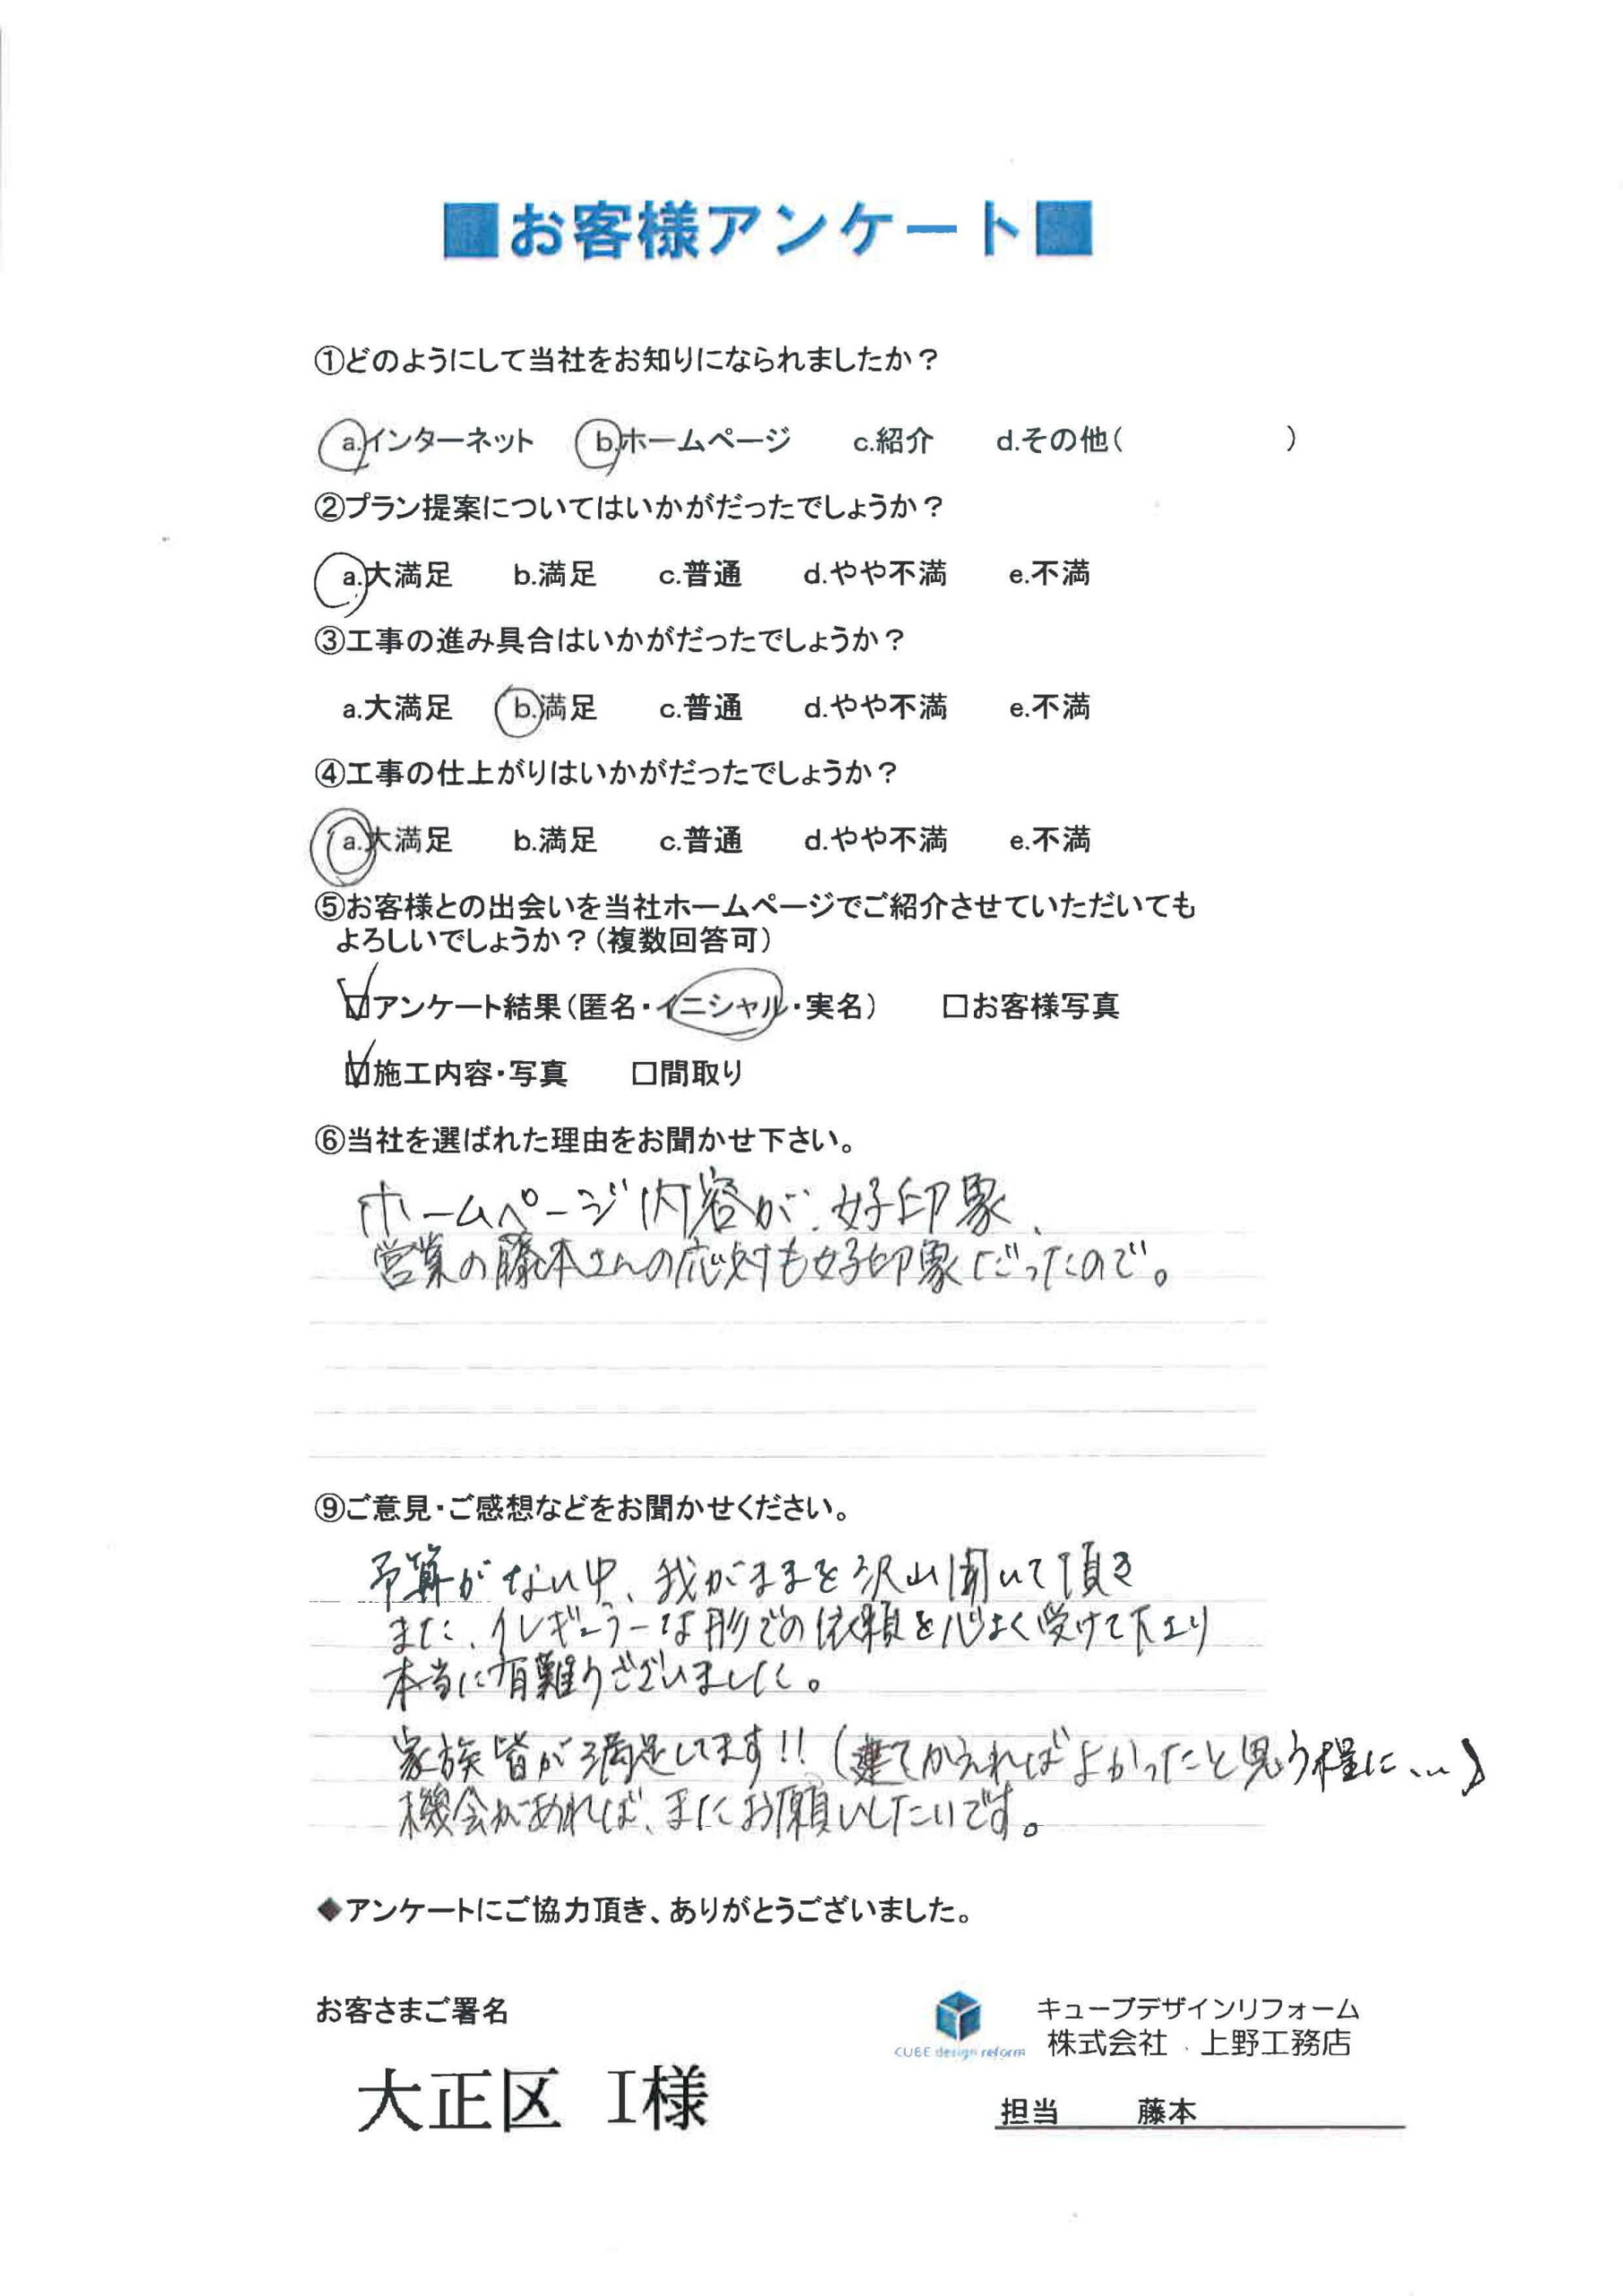 ■お客様アンケート■
①どのようにして当社をお知りになられましたか？
a.インターネット　b.ホームページ　c.紹介　d.その他(　　　　　)
②プラン提案についてはいかがだったでしょうか？
a.大満足　b.満足　c.普通　d.やや不満　e.不満
③工事の進み具合はいかがだったでしょうか？
a.大満足　b.満足　c.普通　d.やや不満　e.不満
④工事の仕上がりはいかがだったでしょうか？
a.大満足　b.満足　c.普通　d.やや不満　e.不満
⑤お客様との出会いを当社ホームページでご紹介させていただいても
よろしいでしょうか？(複数回答可)
☑アンケート結果(匿名・イニシャル・実名)　□お客様写真
☑施工内容・写真　□間取り
⑥当社を選ばれた理由をお聞かせ下さい。
ホームページ内容が、好印象、
営業の藤本さんの応対も好印象だったので。
⑨ご意見・ご感想などをお聞かせください。
予算がない中、我がままを沢山聞いて頂き
また、イレギュラーな形での依頼を心よく受けて下さり
本当に有難うございました。
家族皆が満足してます!!(建てかえればよかったと思う程に…)
機会があれば、またお願いしたいです。
◆アンケートにご協力頂き、ありがとうございました。
お客さまご署名
大正区 I様
CUBE design reform
キューブデザインリフォーム
株式会社 上野工務店
担当　藤本